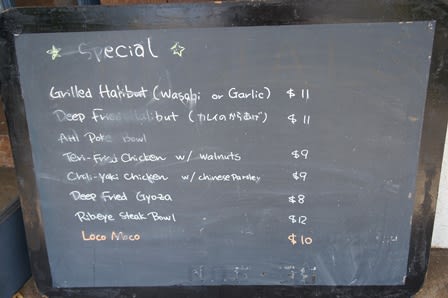 ☆ Special ☆
Grilled Halibut (Wasabi or Garlic) $11
Deep Fried Halibut (カレイのからあげ) $11
Ahi Poke Bowl
Teri-Fried Chicken w/ walnuts $9
Chili-Yaki Chicken w/ chinese Parsley $9
Deep Fried Gyoza $8
Ribeye Steak Bowl $12
Loco Moco $10